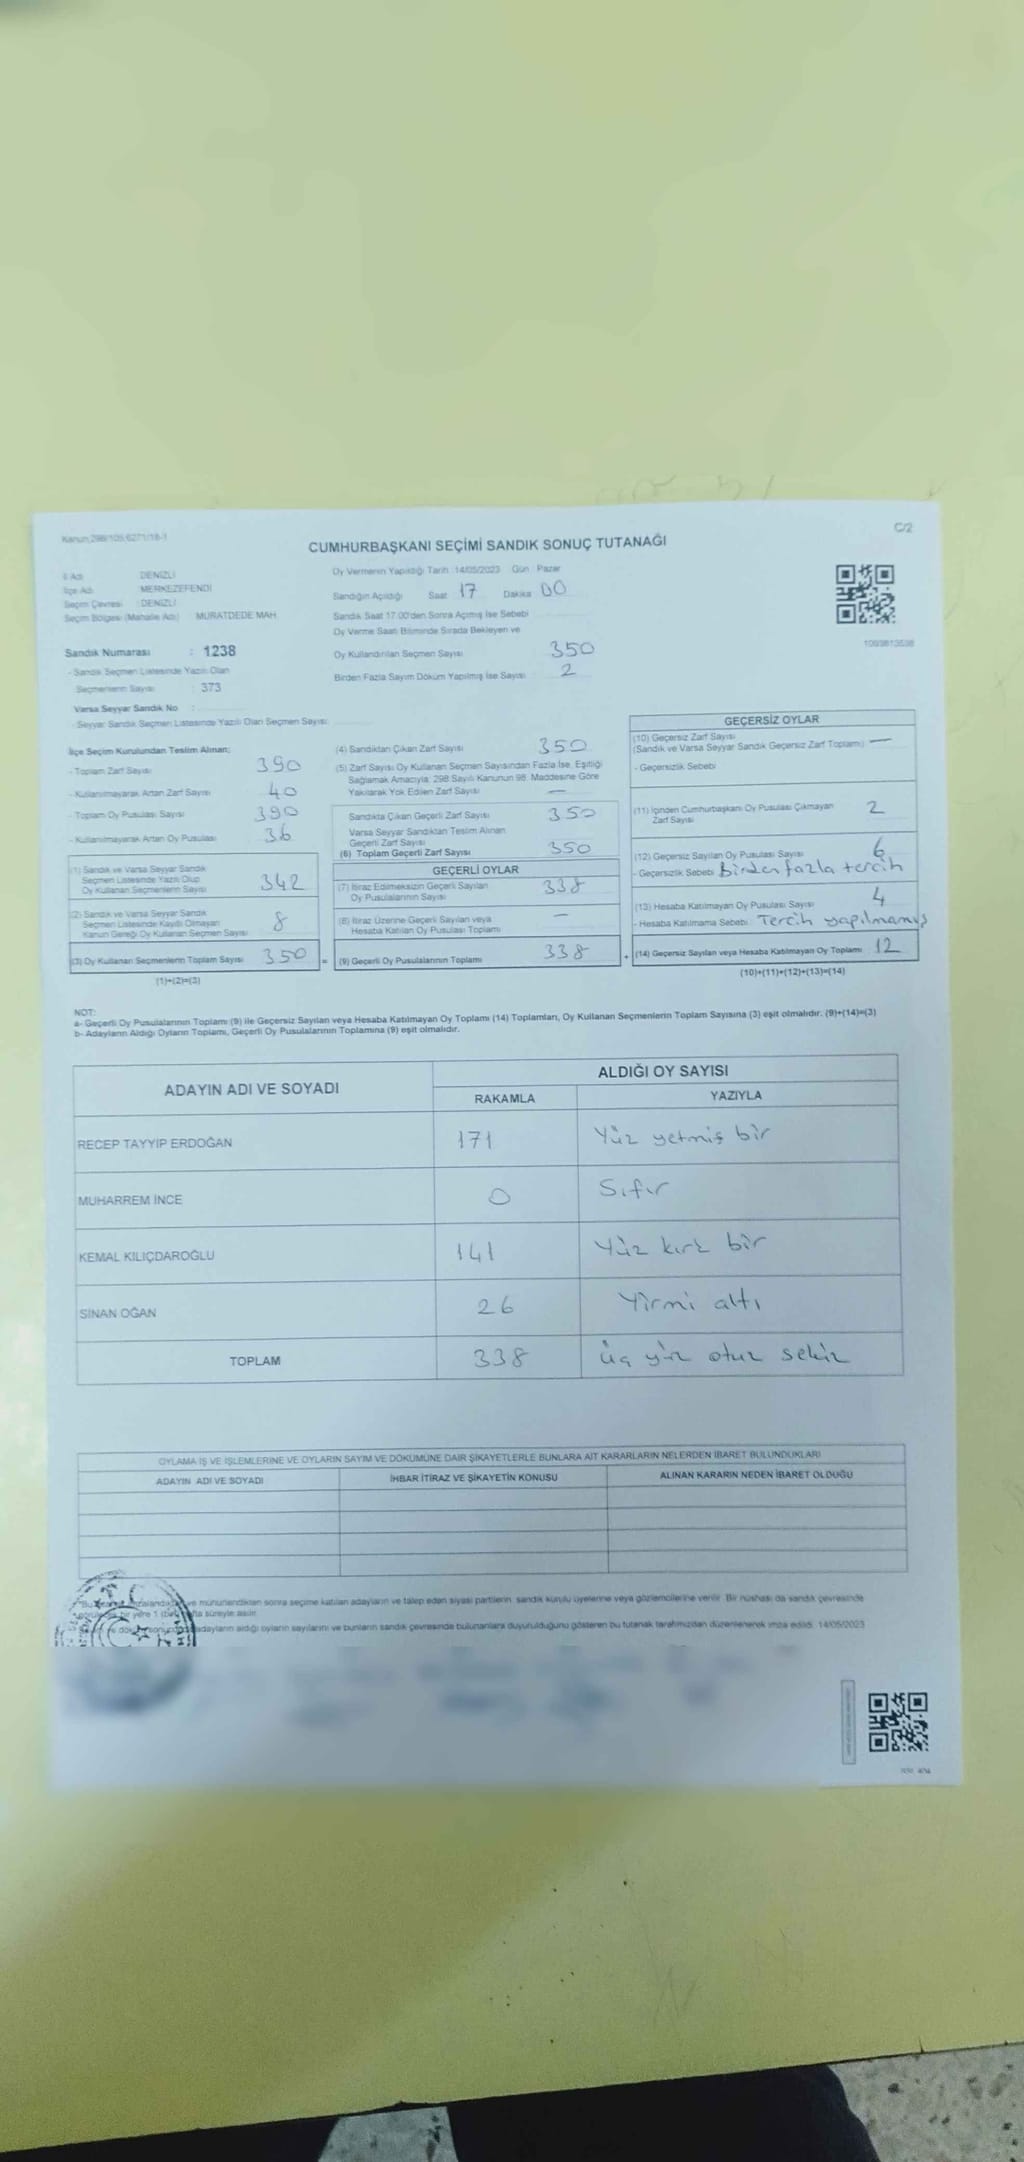 Kanun:298/105,6271/18-1
C/2
CUMHURBAŞKANI SEÇİMİ SANDIK SONUÇ TUTANAĞI
İl Adı DENİZLİ
İlçe Adı MERKEZEFENDİ
Seçim Çevresi : DENİZLİ
Seçim Bölgesi (Mahalle Adı) MURATDEDE MAH.
Sandık Numarası : 1238
- Sandık Seçmen Listesinde Yazılı Olan
Seçmenlerin Sayısı : 373
Varsa Seyyar Sandık No :
- Seyyar Sandık Seçmen Listesinde Yazılı Olan Seçmen Sayısı
Oy Vermenin Yapıldığı Tarih :14/05/2023 Gün : Pazar
Sandığın Açıldığı Saat 17 Dakika 00
Sandık Saat 17.00'den Sonra Açılmış İse Sebebi
Oy Verme Saati Bitiminde Sırada Bekleyen ve
Oy Kullandırılan Seçmen Sayısı 350
Birden Fazla Sayım Döküm Yapılmış İse Sayısı 2
İlçe Seçim Kurulundan Teslim Alınan;
- Toplam Zarf Sayısı 390
- Kullanılmayarak Artan Zarf Sayısı 40
- Toplam Oy Pusulası Sayısı 390
- Kullanılmayarak Artan Oy Pusulası 36
(1) Sandık ve Varsa Seyyar Sandık
Seçmen Listesinde Yazılı Olup
Oy Kullanan Seçmenlerin Sayısı 342
(2) Sandık ve Varsa Seyyar Sandık
Seçmen Listesinde Kayıtlı Olmayan
Kanun Gereği Oy Kullanan Seçmen Sayısı 8
(3) Oy Kullanan Seçmenlerin Toplam Sayısı 350
(1)+(2)=(3)
(4) Sandıktan Çıkan Zarf Sayısı 350
(5) Zarf Sayısı Oy Kullanan Seçmen Sayısından Fazla İse, Eşitliği
Sağlamak Amacıyla; 298 Sayılı Kanunun 98. Maddesine Göre
Yakılarak Yok Edilen Zarf Sayısı —
Sandıkta Çıkan Geçerli Zarf Sayısı 350
Varsa Seyyar Sandıktan Teslim Alınan
Geçerli Zarf Sayısı
(6) Toplam Geçerli Zarf Sayısı 350
GEÇERLİ OYLAR
(7) İtiraz Edilmeksizin Geçerli Sayılan
Oy Pusulalarının Sayısı 338
(8) İtiraz Üzerine Geçerli Sayılan veya
Hesaba Katılan Oy Pusulası Toplamı —
= (9) Geçerli Oy Pusulalarının Toplamı 338
GEÇERSİZ OYLAR
(10) Geçersiz Zarf Sayısı
(Sandık ve Varsa Seyyar Sandık Geçersiz Zarf Toplamı) —
- Geçersizlik Sebebi
(11) İçinden Cumhurbaşkanı Oy Pusulası Çıkmayan
Zarf Sayısı 2
(12) Geçersiz Sayılan Oy Pusulası Sayısı 6
- Geçersizlik Sebebi Birden fazla tercih
(13) Hesaba Katılmayan Oy Pusulası Sayısı 4
- Hesaba Katılmama Sebebi Tercih yapılmamış
+ (14) Geçersiz Sayılan veya Hesaba Katılmayan Oy Toplamı 12
(10)+(11)+(12)+(13)=(14)
NOT:
a- Geçerli Oy Pusulalarının Toplamı (9) ile Geçersiz Sayılan veya Hesaba Katılmayan Oy Toplamı (14) Toplamları, Oy Kullanan Seçmenlerin Toplam Sayısına (3) eşit olmalıdır. (9)+(14)=(3)
b- Adayların Aldığı Oyların Toplamı, Geçerli Oy Pusulalarının Toplamına (9) eşit olmalıdır.
ADAYIN ADI VE SOYADI
ALDIĞI OY SAYISI
RAKAMLA YAZIYLA
RECEP TAYYİP ERDOĞAN 171 Yüz yetmiş bir
MUHARREM İNCE 0 Sıfır
KEMAL KILIÇDAROĞLU 141 Yüz kırk bir
SİNAN OĞAN 26 Yirmi altı
TOPLAM 338 üç yüz otuz sekiz
OYLAMA İŞ VE İŞLEMLERİNE VE OYLARIN SAYIM VE DÖKÜMÜNE DAİR ŞİKAYETLERLE BUNLARA AİT KARARLARIN NELERDEN İBARET BULUNDUKLARI
ADAYIN ADI VE SOYADI İHBAR İTİRAZ VE ŞİKAYETİN KONUSU ALINAN KARARIN NEDEN İBARET OLDUĞU
mühürlendikten sonra seçime katılan adayların ve talep eden siyasi partilerin sandık kurulu üyelerine veya gözlemcilerine verilir. Bir nüshası da sandık çevresinde
bir yere 1 süreyle asılır.
adayların aldığı oyların sayılarını ve bunların sandık çevresinde bulunanlara duyurulduğunu gösteren bu tutanak tarafımızdan düzenlenerek imza edildi. 14/05/2023
T.C.